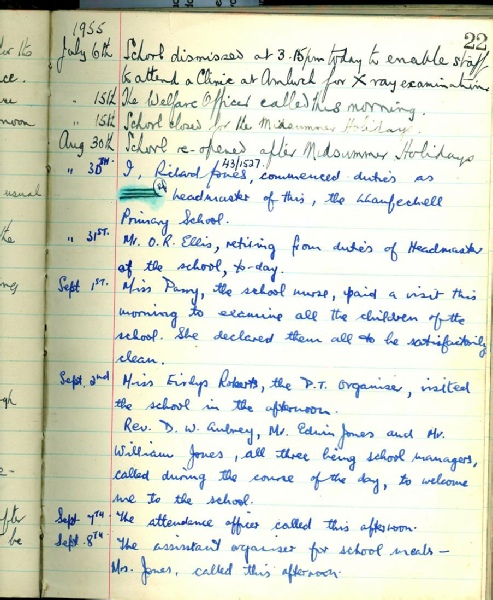 22
1955
July 6th School dismissed at 3.15pm today to enable staff
to attend a Clinic at Amlwch for X ray examination
" 15th The Welfare Officer called this morning.
" 15th School closed for the Midsummer Holiday.
Aug 30th School re-opened after Midsummer Holidays
" 30TH I, Richard Jones, 43/1537, commenced duties as
headmaster of this, the Llanfechell
Primary School.
" 31ST. Mr. O.R. Ellis, retiring from duties of Headmaster
of the school, to-day.
Sept 1ST. Miss Parry, the school nurse, paid a visit this
morning to examine all the children of the
school. She declared them all to be satisfactorily
clean.
Sept. 2nd Miss Eirlys Roberts, the P.T. organiser, visited
the school in the afternoon.
Rev. D. W. Aubrey, Mr. Edwin Jones and Mr.
William Jones, all three being school managers,
called during the course of the day, to welcome
me to the school.
Sept 7TH. The attendance officer called this afternoon.
Sept. 8TH. The assistant organiser for school meals -
Mrs. Jones, called this afternoon.
usual
the
be